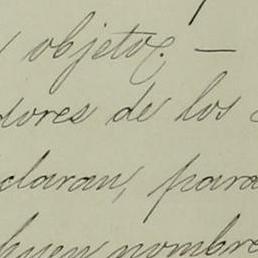 objeto. —
dores de los
claran, para
buen nombre